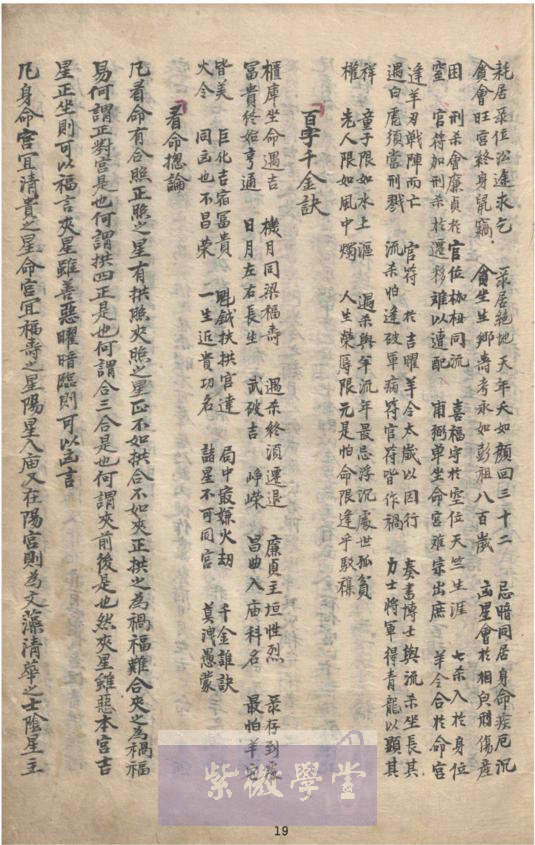 耗居祿位沿途求乞 祿居絕地天年夭如顏回三十二 忌暗同居身命疾厄沉
貪會旺宮終身鼠竊 貪坐生鄉壽考永如彭祖八百歲 凶星會於相與刑傷產
困 刑杀會廉貞於官位枷杻同流 喜福守於空位天竺生涯 七杀入於身位
室 官符加刑杀於遷移難以遭配 甫弼单坐命宮难宗出庶 羊令合於命宮
逢羊刃戰陣而亡 官符 於吉曜羊令太歲以因行 奏書博士與流杀坐長其
遇白虎須當刑戮 流杀怕逢破軍病符官符皆作禍 力士將軍得青龍以顯其
祥 童子限如水上漚 遇杀與羊流年最忌浮沉處世孤貧
權 老人限如風中燭 人生榮辱限元是怕命限逢乎駁襍
百字千金訣
櫃庫坐命遇吉 機月同梁福壽 遇杀終須遷退 廉貞主垣性烈 祿存到處
冨貴終始亨通 日月左右長生 武破吉 崢嶸 昌曲入庙科名 最怕羊它
皆美 巨化吉宿冨貴 魁鉞扶拱官達 局中最嫌火刼 千金誰訣
火令 同凶也不昌榮 一生近貴功名 諸星不可同宮 莫洩愚蒙
看命揔論
凡看命有合照正照之星有拱照夾照之星正不如拱合不如夾正拱之為禍福難合夾之為禍福
易何謂正對宮是也何謂拱四正是也何謂合三合是也何謂夾前後是也然夾星雖惡本宮吉
星正坐則可以福言夾星雖善惡曜暗臨則可以凶言
凡身命宮宜清貴之星命宮宜福壽之星陽星入庙又在陽宮則為文藻清華之士陰星主
紫微學堂
19